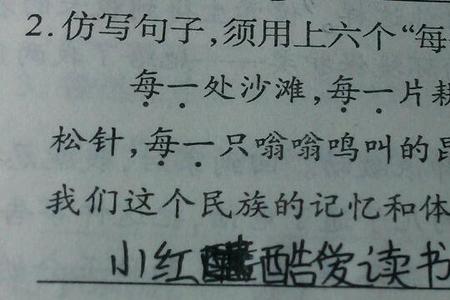 2.仿写句子,须用上六个“每
每一处沙滩,每一片耕
松针,每一只嗡嗡鸣叫的昆
我们这个民族的记忆和体
小红酷爱读书